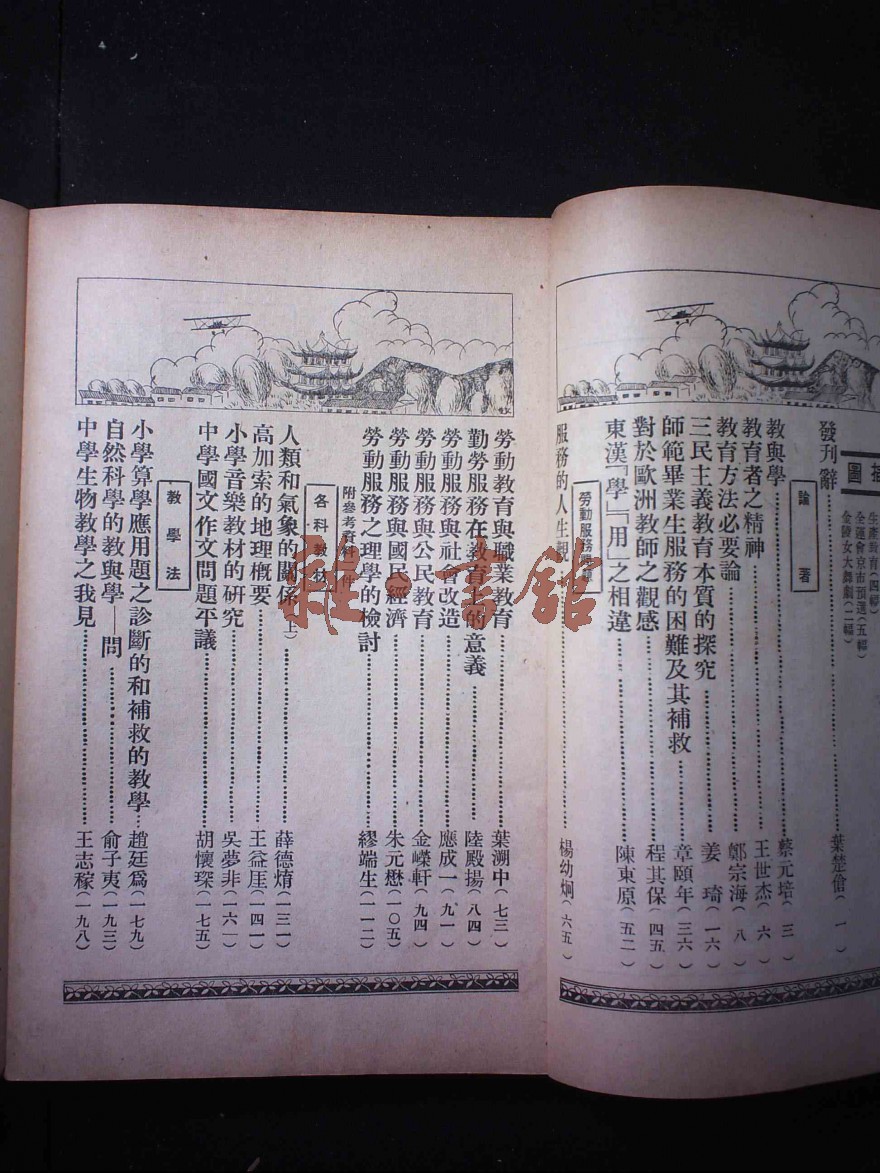 插圖
生產教育(四幅)
全運會京市預選(五幅)
金陵女大舞劇(二幅)
發刊辭……葉楚傖(一)
論著
教與學……蔡元培(三)
教育者之精神……王世杰(六)
教育方法必要論……鄭宗海(八)
三民主義教育本質的探究……姜琦(一六)
師範畢業生服務的困難及其補救……章頤年(三六)
對於歐洲教師之觀感……程其保(四五)
東漢『學』『用』之相違……陳東原(五二)
勞動服務
服務的人生觀……楊幼炯(六五)
勞動教育與職業教育……葉溯中(七三)
勤勞服務在教育上的意義……陸殿揚(八四)
勞動服務與社會改造……應成一(九一)
勞動服務與公民教育……金嶸軒(九四)
勞動服務與國民經濟……朱元懋(一〇五)
勞動服務之理學的檢討……繆端生(一一二)
附參考資料 件
各科教材
人類和氣象的關係(上)……薛德焴(一三一)
高加索的地理概要……王益厓(一四一)
小學音樂教材的研究……吳夢非(一六一)
中學國文作文問題平議……胡懷琛(一七五)
教學法
小學算學應用題之診斷的和補救的教學……趙廷為(一七九)
自然科學的教與學—問……俞子夷(一九三)
中學生物教學之我見……王志稼(一九八)
雜·書館